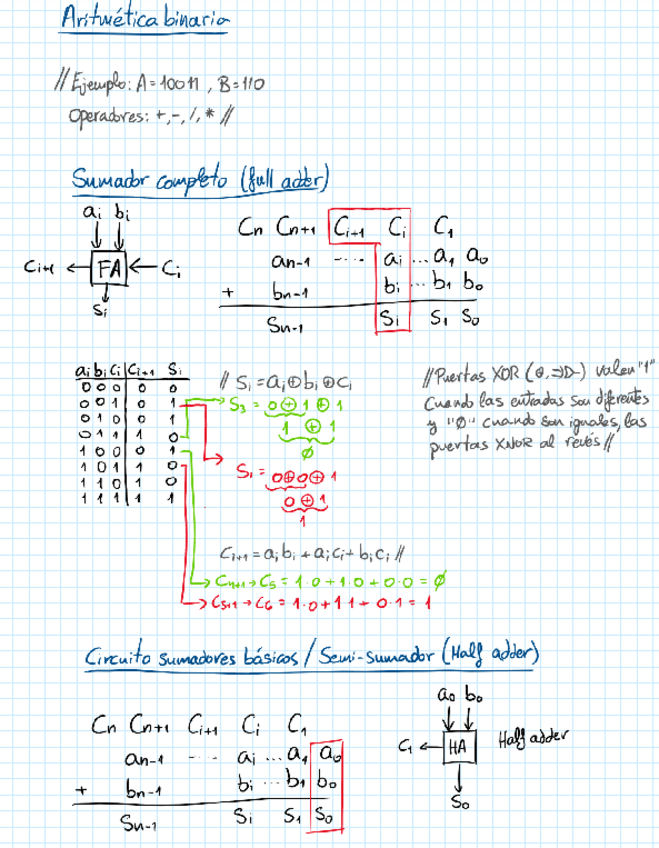 Aritmética binaria
// Ejemplo: A=10011, B=110
Operadores: +,-,/,* //
Sumador completo (full adder)
ai bi
Ci+1 ← FA ← Ci
Si
Cn Cn+1 Ci+1 Ci C1
an-1 ---- ai ... a1 a0
+ bn-1 bi ... b1 b0
Sn-1 Si S1 S0
ai bi ci Ci+1 Si
0 0 0 0 0
0 0 1 0 1
0 1 0 0 1
0 1 1 1 0
1 0 0 0 1
1 0 1 1 0
1 1 0 1 0
1 1 1 1 1
// Si = ai⊕bi⊕ci
S3 = 0⊕1⊕1
1 ⊕ 1
Ø
S1 = 0⊕0⊕1
0⊕1
1
// Puertas XOR (⊕, =D-) valen "1"
Cuando las entradas son diferentes
y "Ø" cuando son iguales, las
puertas XNOR al revés //
Ci+1 = ai bi + ai ci + bi ci //
→ C4+1 → C5 = 1·0+1·0+0·0 = Ø
→ C5+1 → C6 = 1·0+1·1+0·1 = 1
Circuito sumadores básicos / Semi-sumador (Half adder)
Cn Cn+1 Ci+1 Ci C1
an-1 ---- ai ... a1 a0
+ bn-1 bi ... b1 b0
Sn-1 Si S1 S0
a0 b0
C1 ← HA Half adder
S0